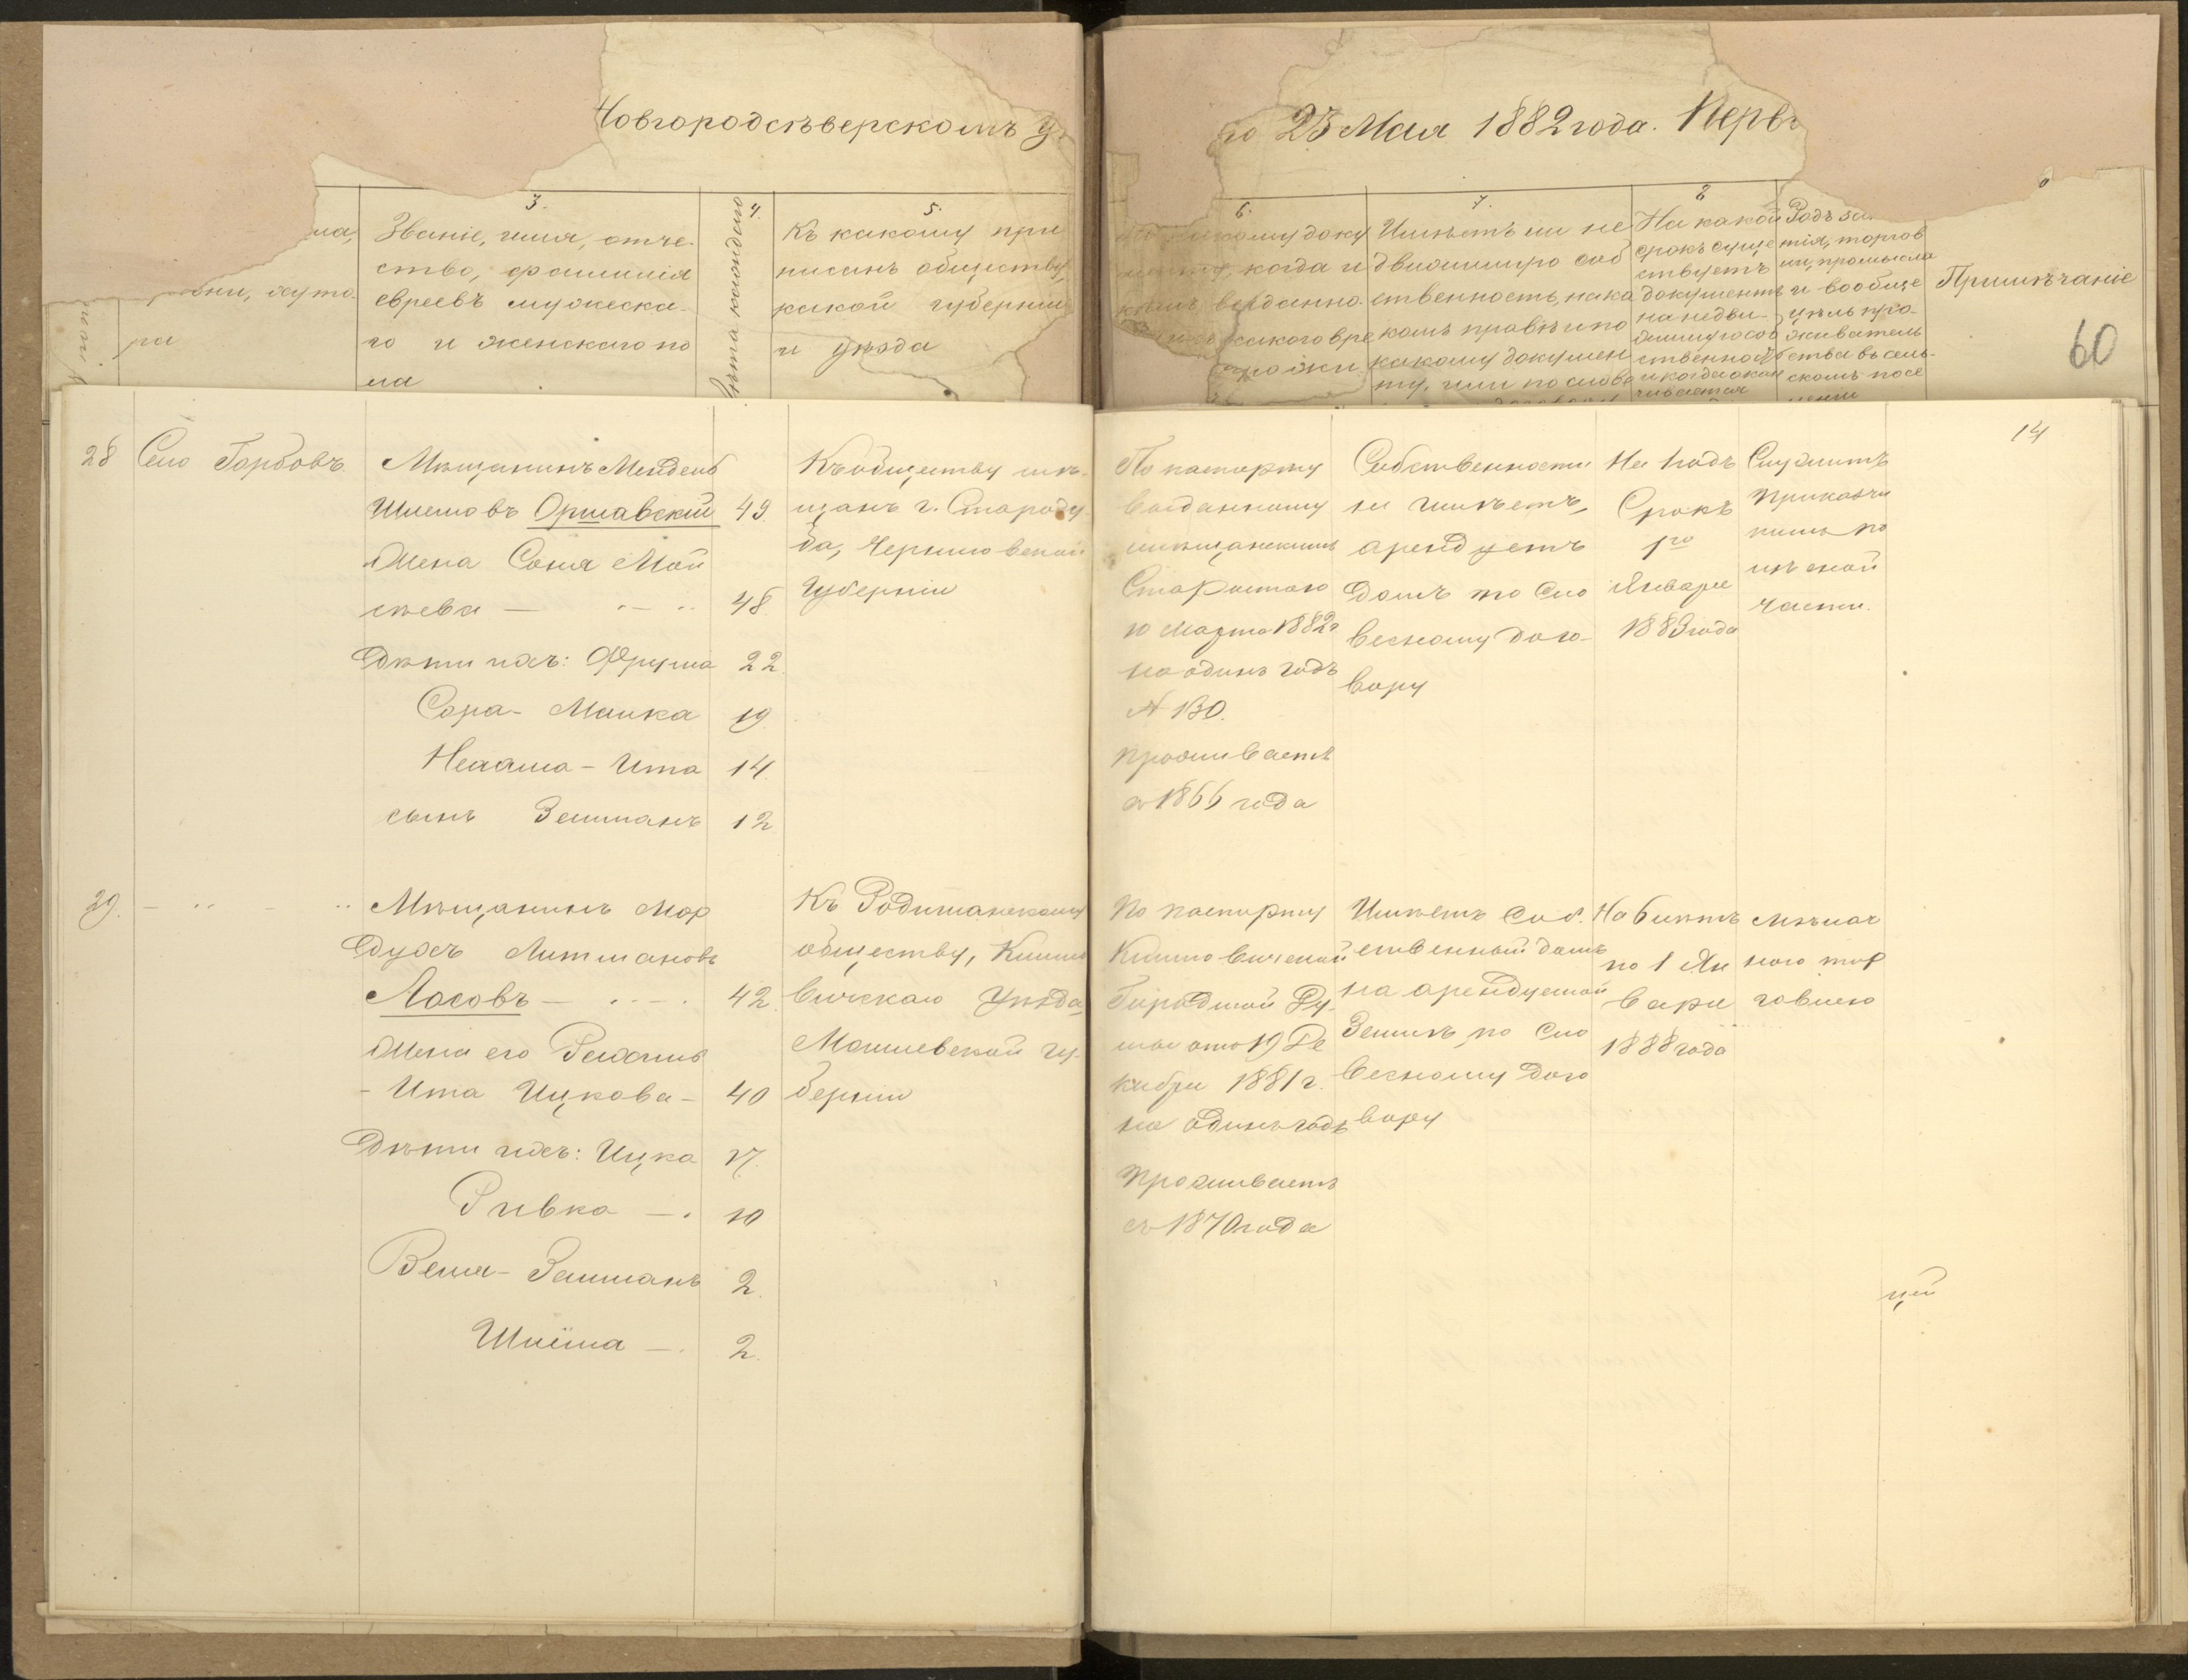 Новгородсѣверскомъ у
го 23 Мая 1882 года. Перв
3.
Званіе, имя, отче-
ство, фамилія
евреевъ мужеска-
го и женскаго по
ла
4.
Лѣта каждаго
5.
Къ какому при
писанъ обществу,
какой губерніи
и уѣзда
6.
какому доку
когда и
кѣмъ выданно
какого вре
прожи
7.
Имѣетъ ли не
движимую соб
ственность, на ка
комъ правѣ и по
какому докумен
ту, или по слове
8
На какой
срокъ суще
ствуетъ
документъ
на недви-
жимую соб
ственность
и когда окан
чивается
Родъ за
тія, торгов
ли, промысла
и вообще
цѣль про-
живатель
ства въ сель-
скомъ посе
леніи
Примѣчаніе
60
14
28 Село Горбовъ
Мѣщанинъ Мендель
Шлемовъ Оршавскій 49
Жена Соня Мой
сѣева — 48
Дѣти ихъ: Фрума 22
Сора-Малка 19
Нехама-Ита 14
сынъ Залманъ 12
Къ обществу мѣ-
щанъ г. Староду
ба, Черниговской
Губерніи
По паспорту
выданному
мѣщанскимъ
Старостою
10 Марта 1882 г
на одинъ годъ
№ 130.
Проживаетъ
съ 1866 года
Собственности
не имѣетъ,
арендуетъ
домъ по сло
весному дого-
вору
На 1 годъ
Срокъ
1го
Января
1883 года
Служитъ
приказчи
комъ по
лѣсной
части.
29.
Мѣщанинъ Мор
духъ Литмановъ
Лосовъ — 42
Жена его
- Ита Ицкова - 40
Дѣти ихъ: Ицка 17.
Ривка — 10
Залманъ 2.
Шлёма — 2.
Къ Родимянскому
обществу, Климо
вичскаго уѣзда,
Могилевской гу-
берніи
По паспорту
Климовичской
Городской Ду-
мы отъ 19 Де
кабря 1881 г.
на одинъ годъ
Проживаетъ
съ 1870 года
Имѣетъ соб-
ственный домъ
на арендуемой
Землѣ по сло
весному дого
вору
На 6 лѣтъ
по 1 Ян
варя
1888 года
мѣлоч
ною тор
говлею